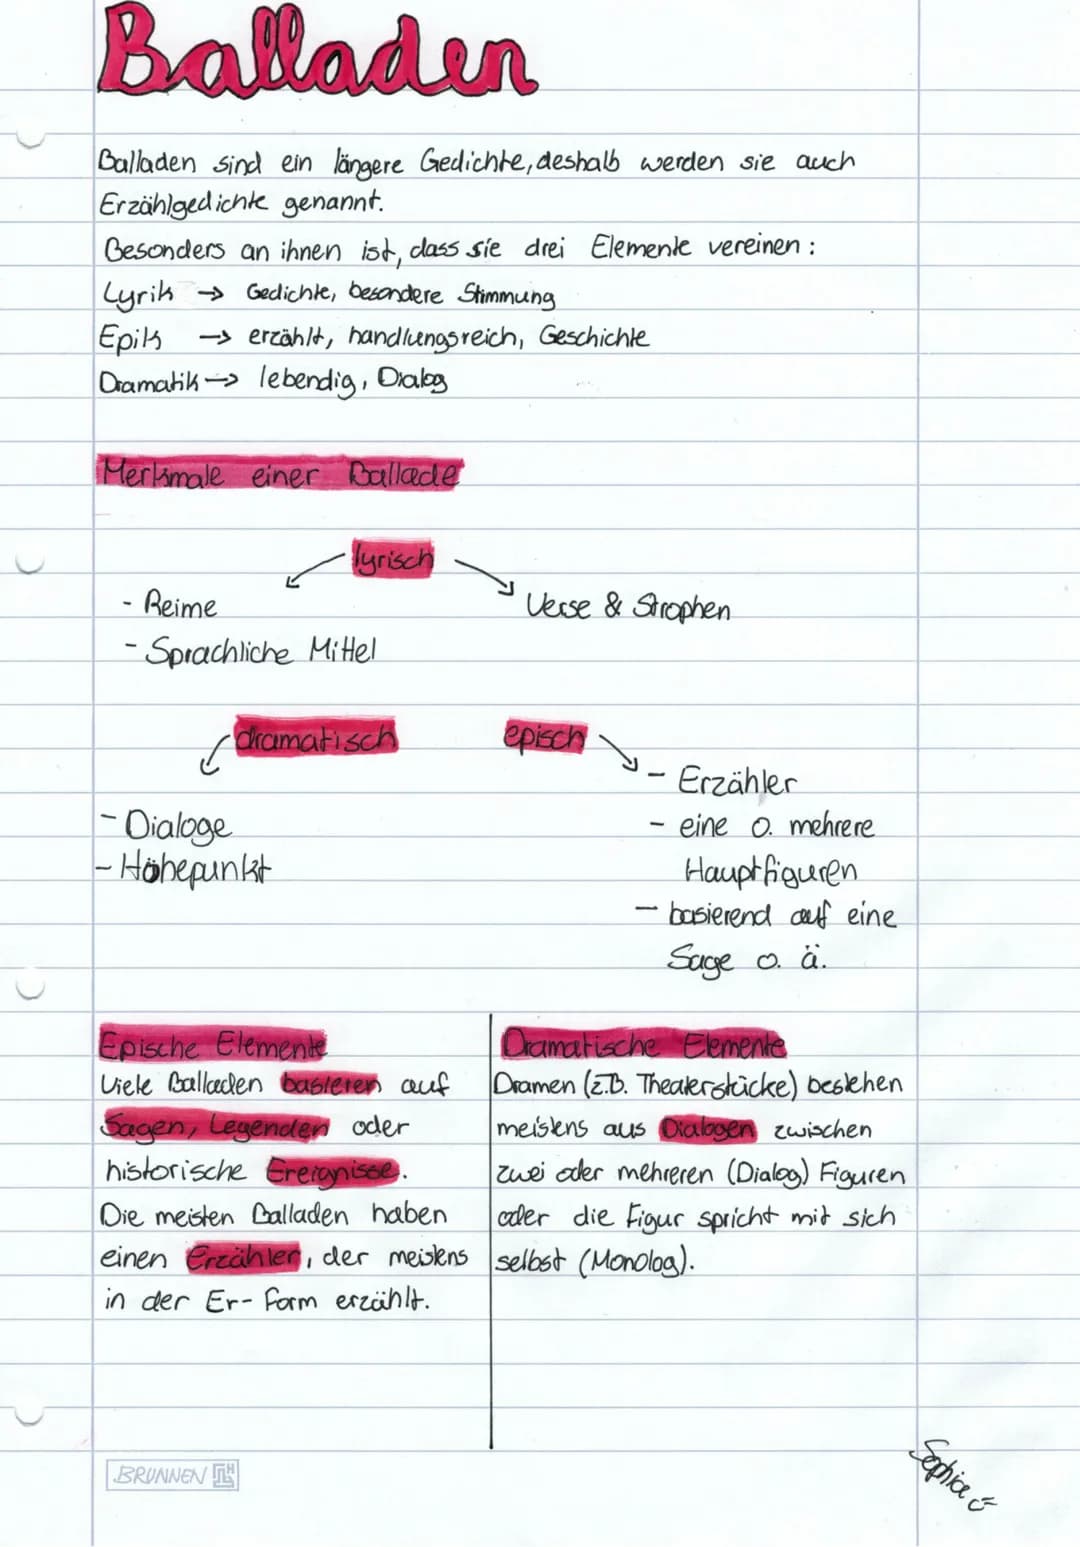 Balladen
Balladen sind ein längere Gedichte, deshalb werden sie auch
Erzählgedichte genannt.
Besonders an ihnen ist, dass sie drei Elemente vereinen:
Lyrik → Gedichte, besondere Stimmung
Epik → erzählt, handlungsreich, Geschichte
Dramatik → lebendig, Dialog
Merkmale einer Ballade
lyrisch
- Reime
- Sprachliche Mittel
Verse & Strophen
dramatisch
- Dialoge
- Höhepunkt
episch
- Erzähler
- eine o. mehrere
Hauptfiguren
- basierend auf eine
Sage o. ä.
Epische Elemente
Viele Balladen basieren auf
Sagen, Legenden oder
historische Ereignisse.
Die meisten Balladen haben
einen Erzähler, der meistens
in der Er-Form erzählt.
Dramatische Elemente
Dramen (z.B. Theaterstücke) bestehen
meistens aus Dialogen zwischen
zwei oder mehreren (Dialog) Figuren
oder die Figur spricht mit sich
selbst (Monolog).
BRUNNEN
Sophica